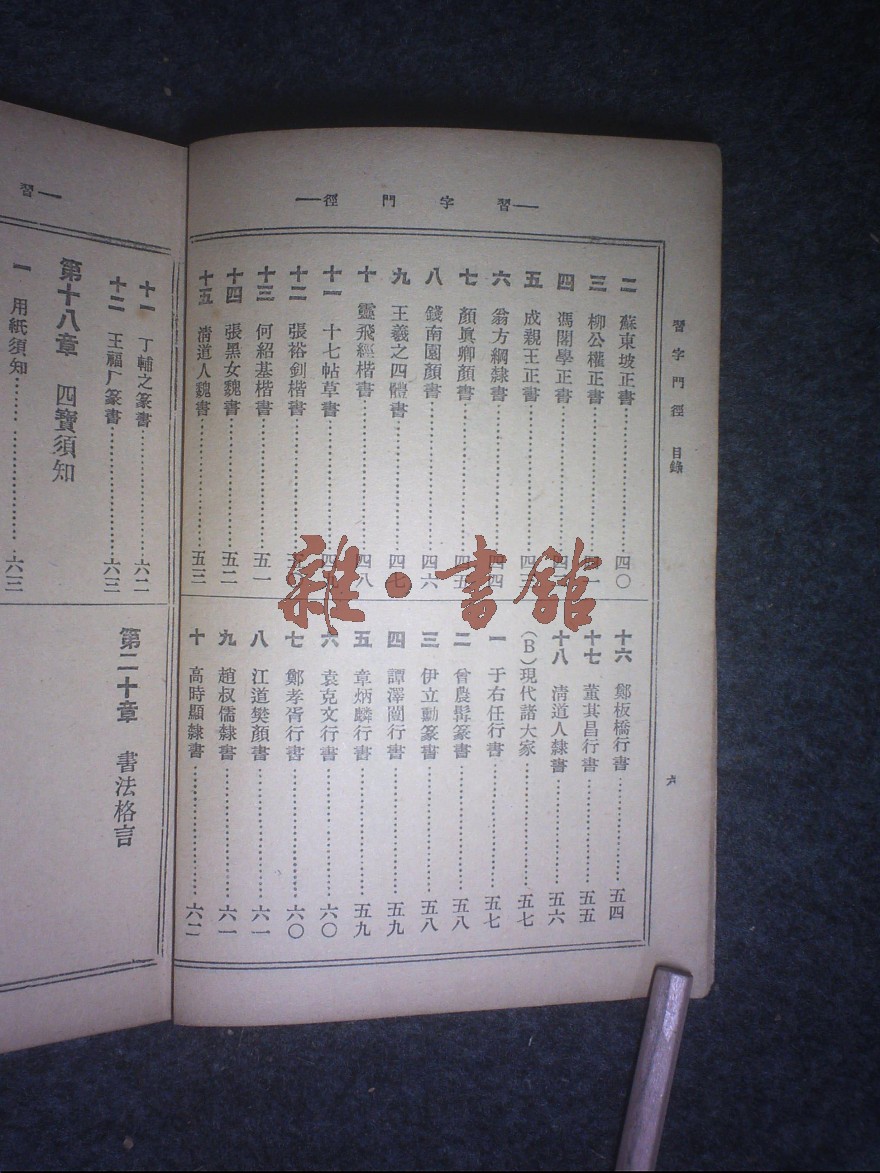 —習字門徑—
習字門徑 目錄
六
二 蘇東坡正書……四〇
三 柳公權正書……四一
四 馮閣學正書……四
五 成親王正書……四三
六 翁方綱隸書……四四
七 顏眞卿顏書……四五
八 錢南園顏書……四六
九 王羲之四體書……四七
十 靈飛經楷書……四八
十一 十七帖草書……四九
十二 張裕釗楷書……五
十三 何紹基楷書……五一
十四 張黑女魏書……五二
十五 清道人魏書……五三
十六 鄭板橋行書……五四
十七 董其昌行書……五五
十八 清道人隸書……五六
(B)現代諸大家……五七
一 于右任行書……五七
二 曾農髯篆書……五八
三 伊立勳篆書……五八
四 譚澤闓行書……五九
五 章炳麟行書……五九
六 袁克文行書……六〇
七 鄭孝胥行書……六〇
八 江道樊顏書……六一
九 趙叔儒隸書……六一
十 高時顯隸書……六二
習—
十一 丁輔之篆書……六二
十二 王福厂篆書……六三
第十八章 四寶須知
一 用紙須知……六三
第二十章 書法格言
雜·書館